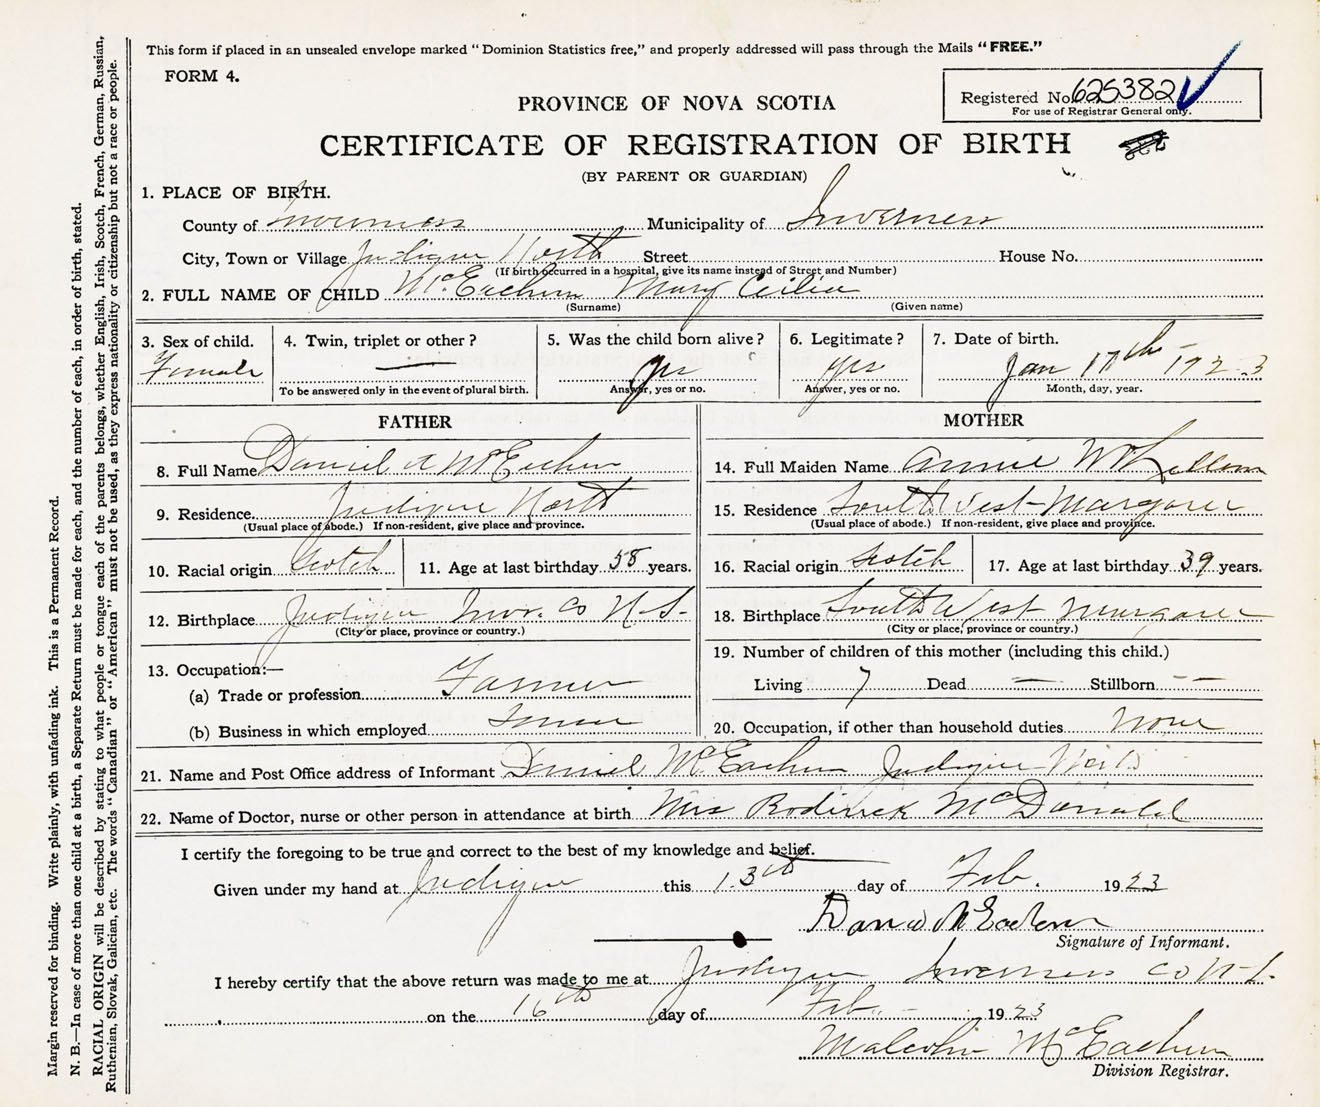 This form if placed in an unsealed envelope marked "Dominion Statistics free," and properly addressed will pass through the Mails "FREE."
FORM 4.
Registered No. 625382
For use of Registrar General only.
PROVINCE OF NOVA SCOTIA
CERTIFICATE OF REGISTRATION OF BIRTH
(BY PARENT OR GUARDIAN)
1. PLACE OF BIRTH.
County of Inverness Municipality of Inverness
City, Town or Village Judique North Street House No.
(If birth occurred in a hospital, give its name instead of Street and Number)
2. FULL NAME OF CHILD McEachern Mary Cecilia
(Surname) (Given name)
3. Sex of child. 4. Twin, triplet or other? 5. Was the child born alive? 6. Legitimate? 7. Date of birth.
Female — yes yes Jan 17th 1923
To be answered only in the event of plural birth. Answer, yes or no. Answer, yes or no. Month, day, year.
FATHER
8. Full Name Daniel A McEachern
9. Residence Judique North
(Usual place of abode.) If non-resident, give place and province.
10. Racial origin Scotch 11. Age at last birthday 58 years.
12. Birthplace Judique Inver. Co N.S.
(City or place, province or country.)
13. Occupation:—
(a) Trade or profession Farmer
(b) Business in which employed
MOTHER
14. Full Maiden Name Annie McLellan
15. Residence South West Margaree
(Usual place of abode.) If non-resident, give place and province.
16. Racial origin Scotch 17. Age at last birthday 39 years.
18. Birthplace South West Margaree
(City or place, province or country.)
19. Number of children of this mother (including this child.)
Living 7 Dead — Stillborn —
20. Occupation, if other than household duties None
21. Name and Post Office address of Informant Daniel McEachern Judique North
22. Name of Doctor, nurse or other person in attendance at birth Mrs Roderick McDonald
I certify the foregoing to be true and correct to the best of my knowledge and belief.
Given under my hand at Judique this 13th day of Feb. 1923
McEachern
Signature of Informant.
I hereby certify that the above return was made to me at Judique Inverness Co N.S.
on the 16th day of Feb 1923
Malcolm McEachern
Division Registrar.
Margin reserved for binding. Write plainly, with unfading ink. This is a Permanent Record.
N. B.—In case of more than one child at a birth, a Separate Return must be made for each, and the number of each, in order of birth, stated.
RACIAL ORIGIN will be described by stating to what people or tongue each of the parents belongs, whether English, Irish, Scotch, French, German, Russian,
Ruthenian, Slovak, Galician, etc. The words "Canadian" or "American" must not be used, as they express nationality or citizenship but not a race or people.